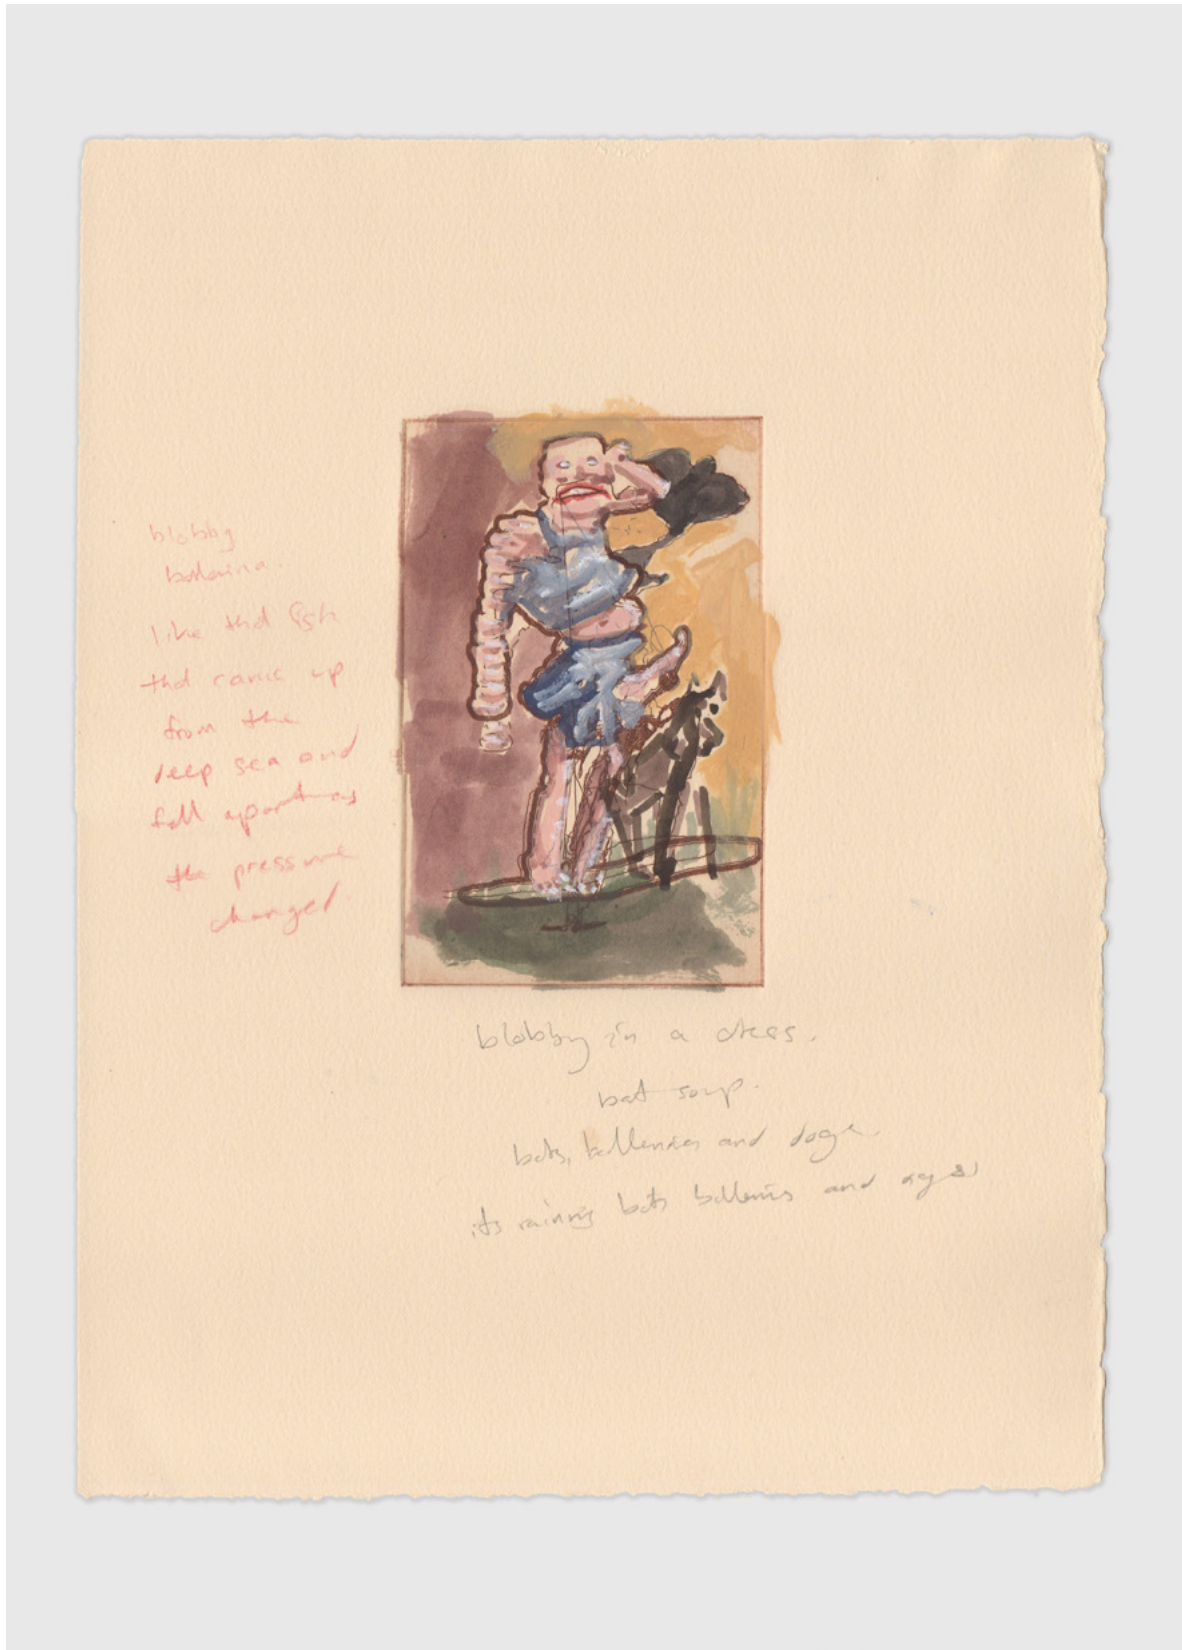 blobby
ballerina.
like that fish
that came up
from the
deep sea and
fall apart as
the pressure
changed.
blobby in a dress.
bat soup.
bats, ballerinas and dogs.
its raining bats ballerinas and